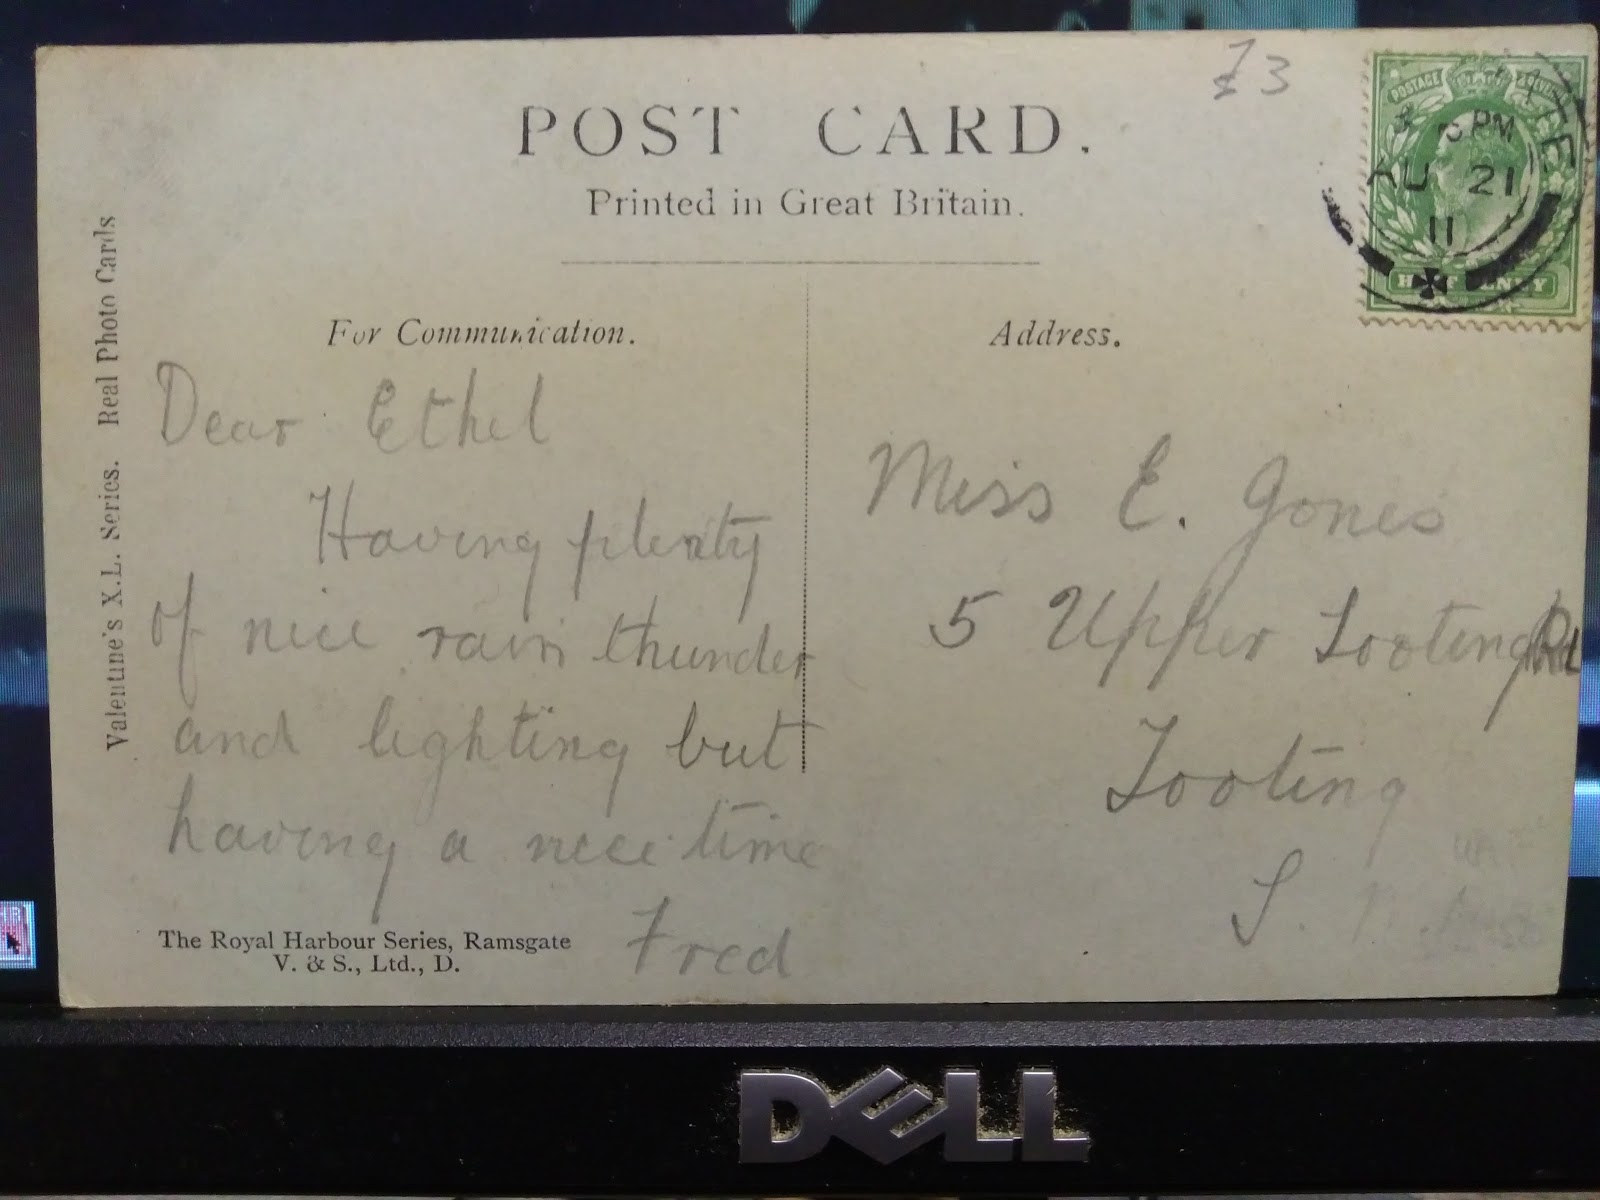 £3
POST CARD.
Printed in Great Britain.
POSTAGE
PM
AU 21
11
HALF PENNY
Valentine's X.L. Series. Real Photo Cards
For Communication.
Dear Ethel
Having plenty
of nice rain thunder
and lighting but
having a nice time
Fred
The Royal Harbour Series, Ramsgate
V. & S., Ltd., D.
Address.
Miss E. Jones
5 Upper Tooting Rd
Tooting
S.
DELL